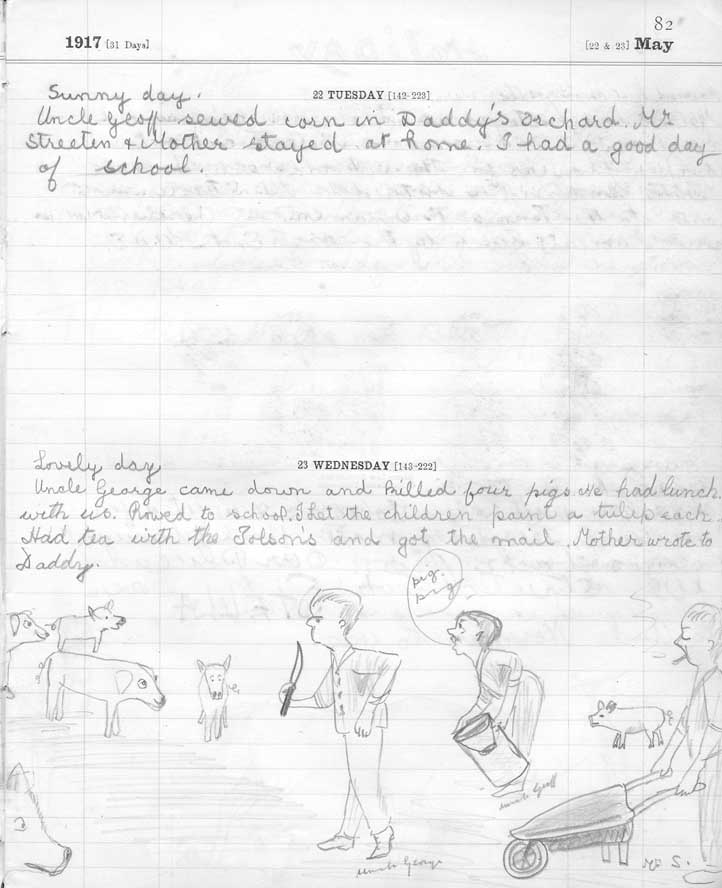 82
1917 [31 Days] [22 & 23] May
22 TUESDAY [142-223]
Sunny day.
Uncle Geoff sewed corn in Daddy's orchard. Mr
Streeten & Mother stayed at home. I had a good day
of school.
23 WEDNESDAY [143-222]
Lovely day
Uncle George came down and killed four pigs. He had lunch
with us. Rowed to school. I let the children paint a tulep each.
Had tea with the Tolsons and got the mail. Mother wrote to
Daddy.
pig.
pig
uncle Geoff
uncle George
Mr S.